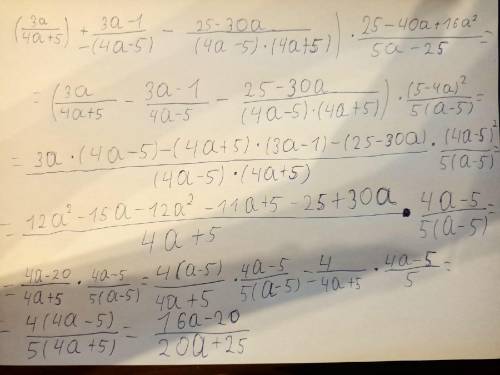 (3a/(4a+5)) + (3a-1)/(-(4a-5)) - (25-30a)/((4a-5)·(4a+5))) · (25-40a+16a²)/(5a-25) =
= (3a/(4a+5) - (3a-1)/(4a-5) - (25-30a)/((4a-5)·(4a+5))) · (5-4a)²/(5(a-5)) =
= (3a·(4a-5)-(4a+5)·(3a-1)-(25-30a))/((4a-5)·(4a+5)) · (4a-5)²/(5(a-5)) =
= (12a²-15a-12a²-11a+5-25+30a)/(4a+5) · (4a-5)/(5(a-5)) =
= (4a-20)/(4a+5) · (4a-5)/(5(a-5)) = 4(a-5)/(4a+5) · (4a-5)/(5(a-5)) = 4/(4a+5) · (4a-5)/5 =
= 4(4a-5)/(5(4a+5)) = (16a-20)/(20a+25)